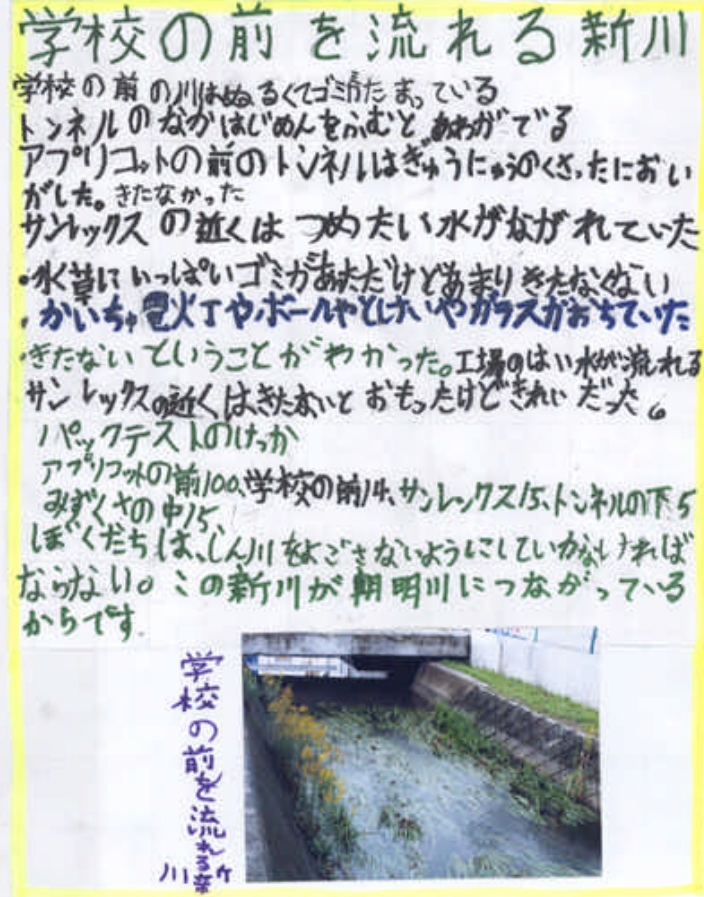 学校の前を流れる新川
学校の前の川はぬるくてゴミがたまっている
トンネルのなかはじめんをふむとあわがでる
アプリコットの前のトンネルはぎゅうにゅうのくさったにおい
がした。きたなかった
サンレックスの近くはつめたい水がながれていた
・水草にいっぱいゴミがあただけどあまりきたなくない
・かいちゅ電火丁やボールやとけいやガラスがおちていた
・きたないということがわかった。工場のはい水が流れる
サンレックスの近くはきたないとおもったけどきれいだった。
パックテストのけっか
アプリコットの前100、学校の前14、サンレックス15、トンネルの下5
みずくさの中15、
ぼくたちは、しん川をよごさないようにしていかなければ
ならない。この新川が朝明川につながっている
からです.
学校の前を流れる新
川